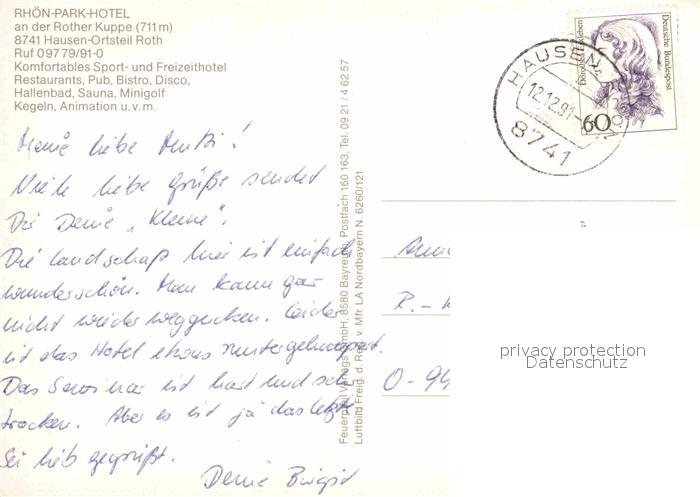 RHÖN-PARK-HOTEL
an der Rother Kuppe (711 m)
8741 Hausen-Ortsteil Roth
Ruf 0 97 79/91-0
Komfortables Sport- und Freizeithotel
Restaurants, Pub, Bistro, Disco,
Hallenbad, Sauna, Minigolf
Kegeln, Animation u.v.m.
Meine liebe Mutti!
Viele liebe Grüße sendet
Dir Deine „Kleine".
Die Landschaft hier ist einfach
wunderschön. Man kann gar
nicht wieder weggucken. Leider
ist das Hotel etwas runtergekommen.
Das Seminar ist hart und sehr
trocken. Aber es ist ja das letzte.
Sei lieb gegrüßt.
Deine Birgit
Feuerpfeil Verlags GmbH, 8580 Bayreuth, Postfach 160 163, Tel. 09 21 / 4 62 57
Luftbild Freig. d. Reg. v. Mfr. LA Nordbayern N. 6260/121
HAUSEN
12.12.91
8741
Dorothea Erxleben
Deutsche Bundespost
60
R.-
O-94
privacy protection
Datenschutz